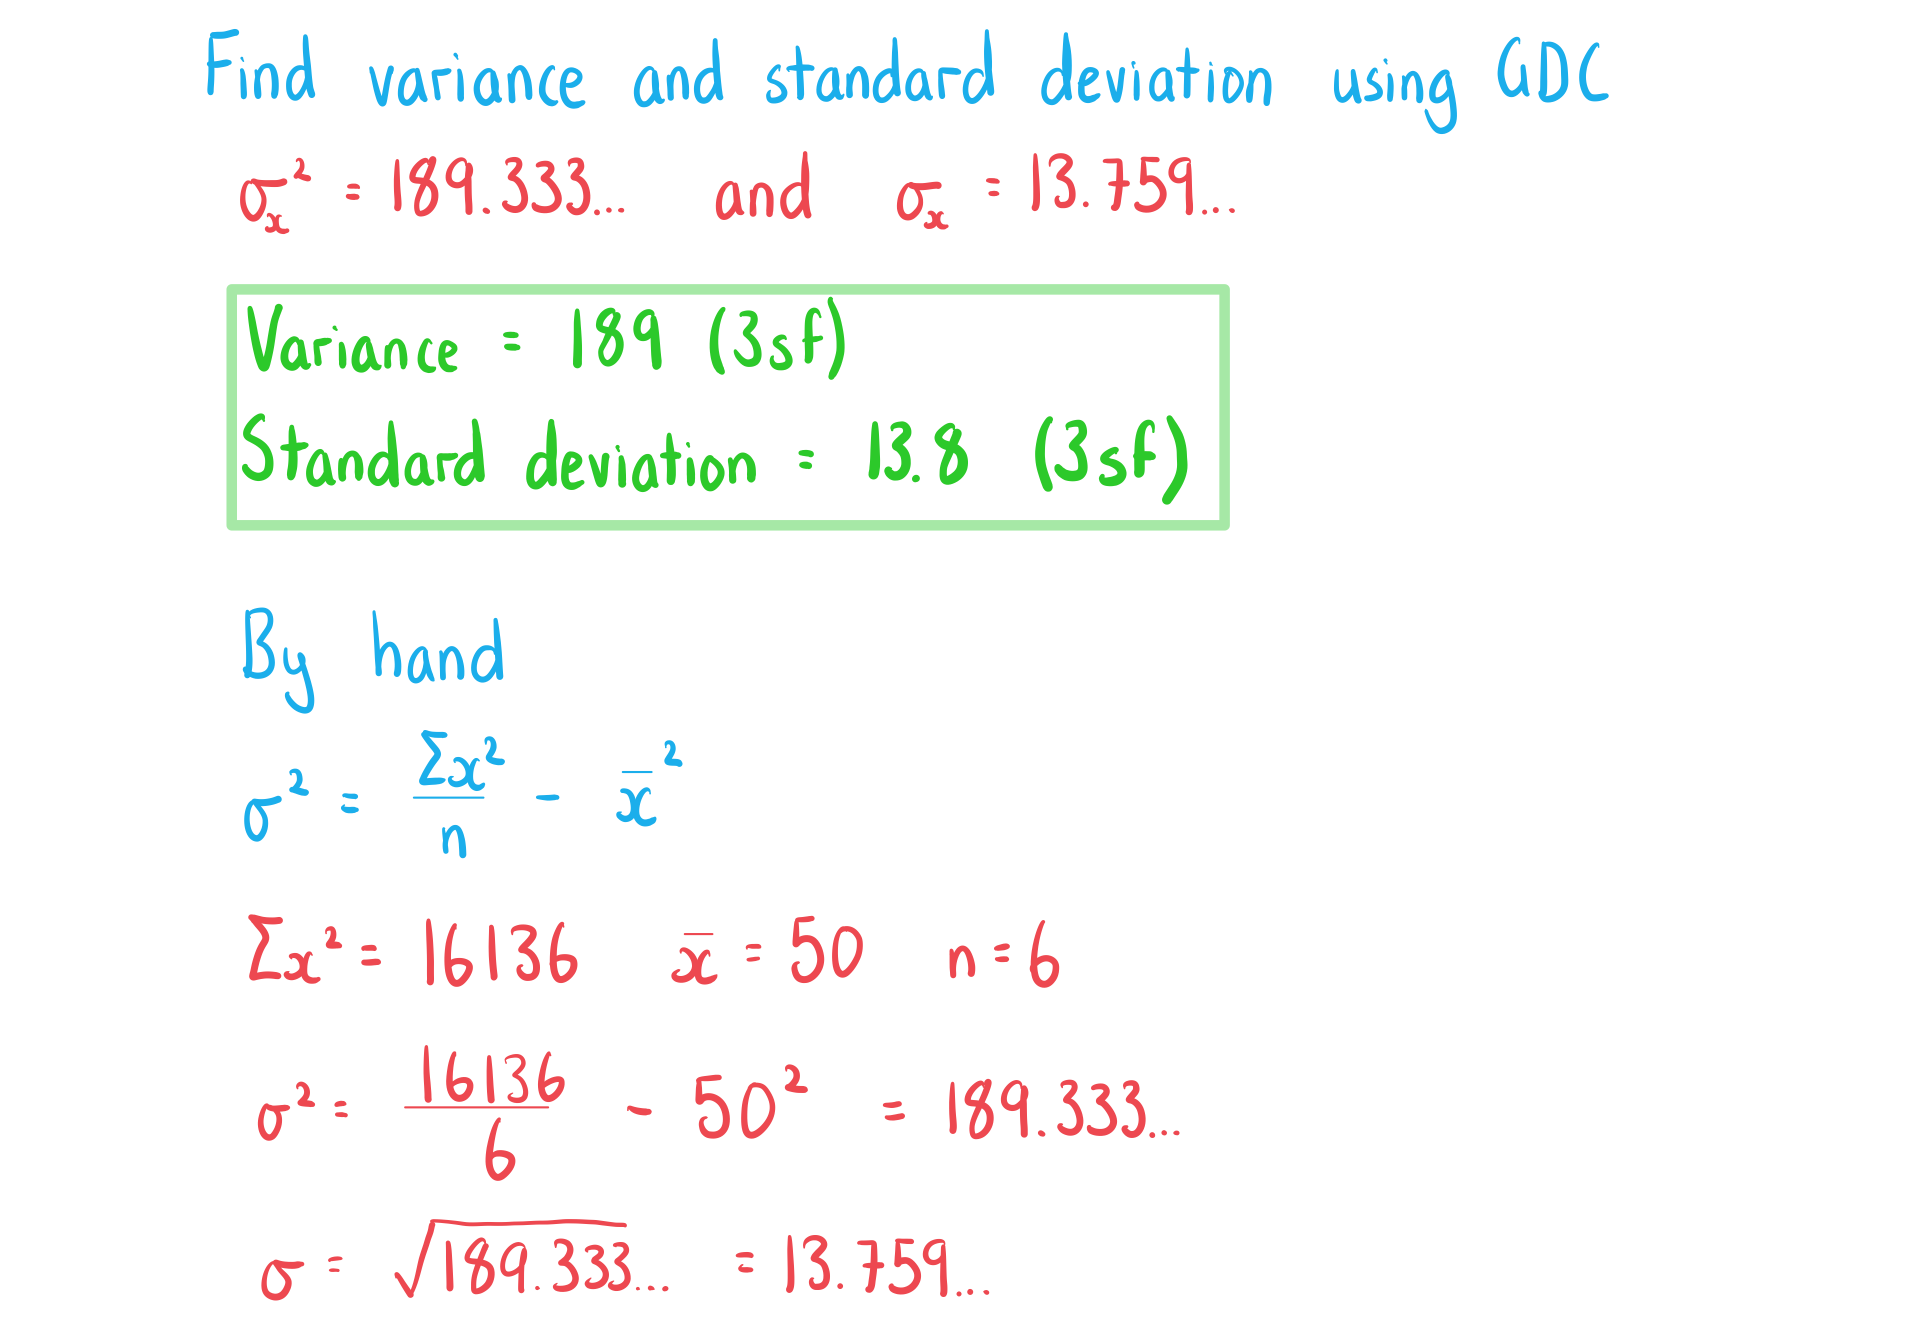 Find variance and standard deviation using GDC
σₓ² = 189.333... and σₓ = 13.759...
Variance = 189 (3sf)
Standard deviation = 13.8 (3sf)
By hand
σ² = Σx²/n - x̄²
Σx² = 16136 x̄ = 50 n = 6
σ² = 16136/6 - 50² = 189.333...
σ = √189.333... = 13.759...